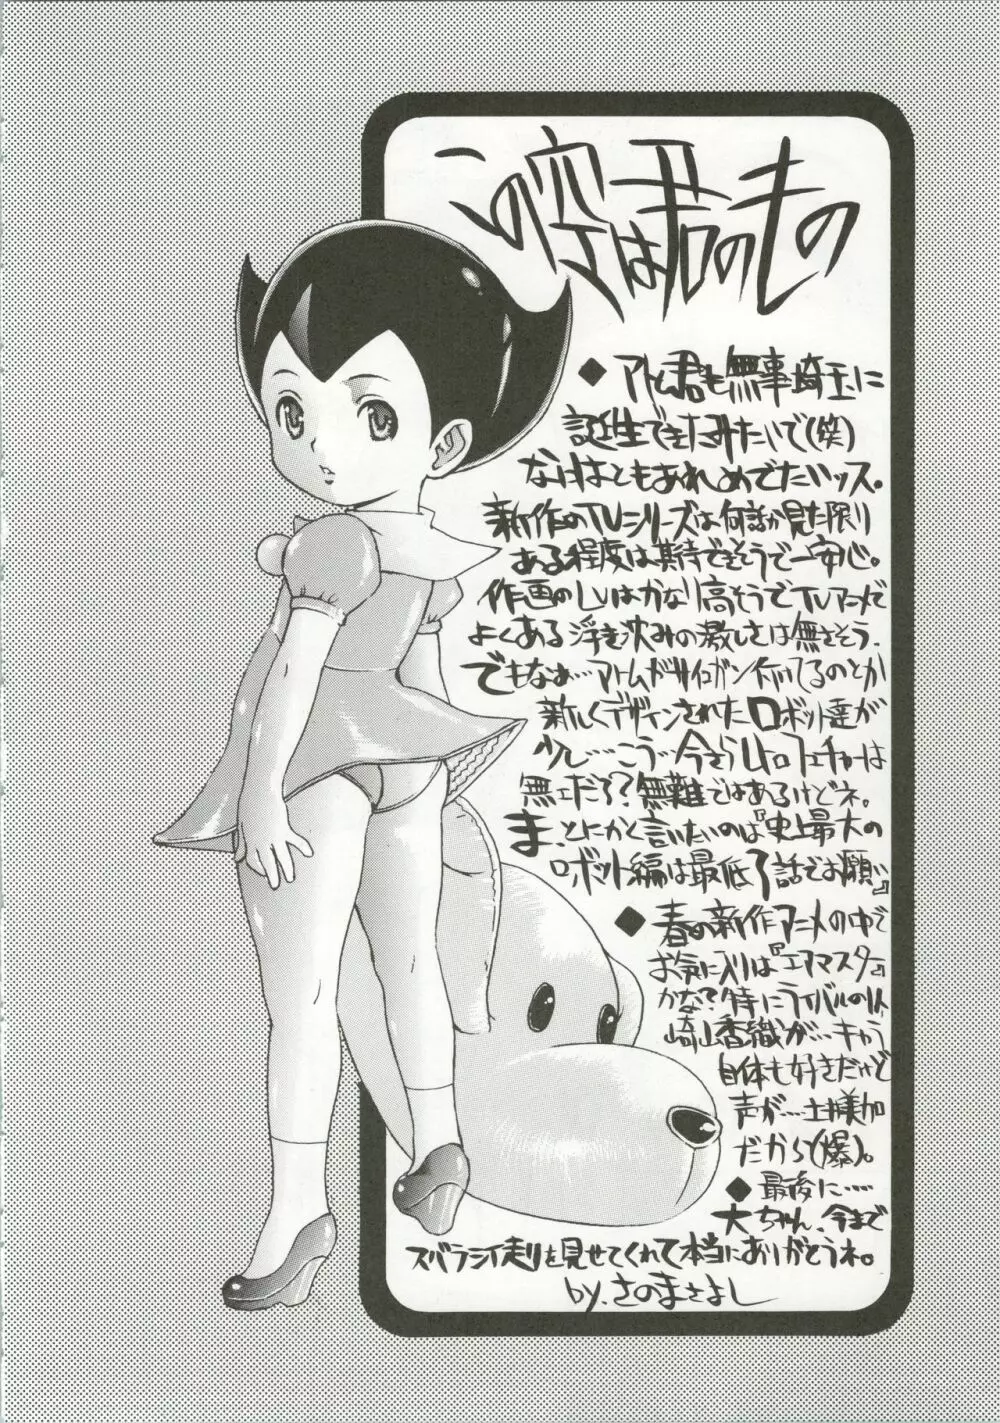 この空は君のもの
◆アトム君も無事埼玉に
誕生できたみたいで(笑)
なにはともあれめでたいッス。
新作のTVシリーズは何話か見た限り
ある程度は期待できそうで一安心。
作画のLVはかなり高そうでTVアニメで
よくある浮き沈みの激しさは無さそう。
でもなぁ…アトムがサイコガン付けてるのとか
新しくデザインされたロボット達が
少し…こう…今さらレトロフューチャーは
無エだろ?無難ではあるけどネ。
ま、とにかく言いたいのは『史上最大の
ロボット編は最低3話でお願い』
◆春の新作アニメの中で
お気に入りは『エアマスター』
かな?特にライバルの
崎山香織が…キャラ
自体も好きだけど
声が…土様加
だから(爆)。
◆最後に……
大ちゃん、今まで
スバラシイ走りを見せてくれて本当にありがとうネ。
by.さのまさよし